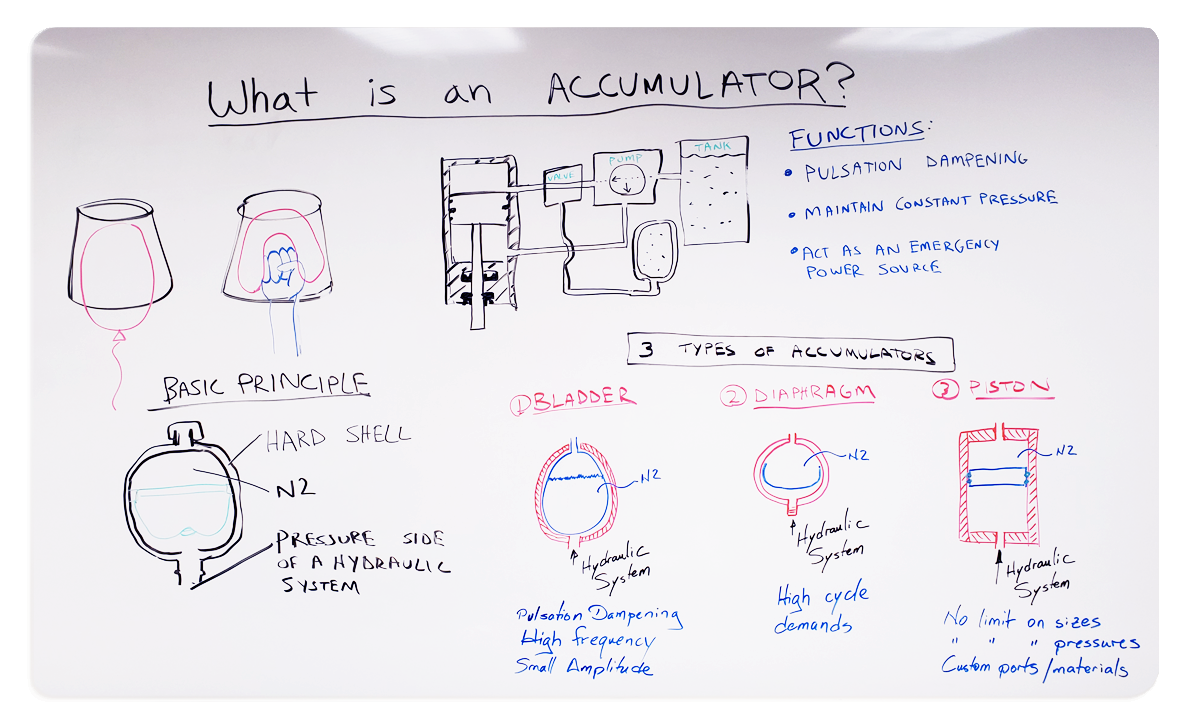 What is an ACCUMULATOR?
FUNCTIONS:
• PULSATION DAMPENING
• MAINTAIN CONSTANT PRESSURE
• ACT AS AN EMERGENCY
POWER SOURCE
VALVE
PUMP
TANK
BASIC PRINCIPLE
HARD SHELL
N2
PRESSURE SIDE
OF A HYDRAULIC
SYSTEM
3 TYPES OF ACCUMULATORS
① BLADDER
N2
Hydraulic
System
Pulsation Dampening
High frequency
Small Amplitude
② DIAPHRAGM
N2
Hydraulic
System
High cycle
demands
③ PISTON
N2
Hydraulic
System
No limit on sizes
" " " pressures
Custom ports/materials